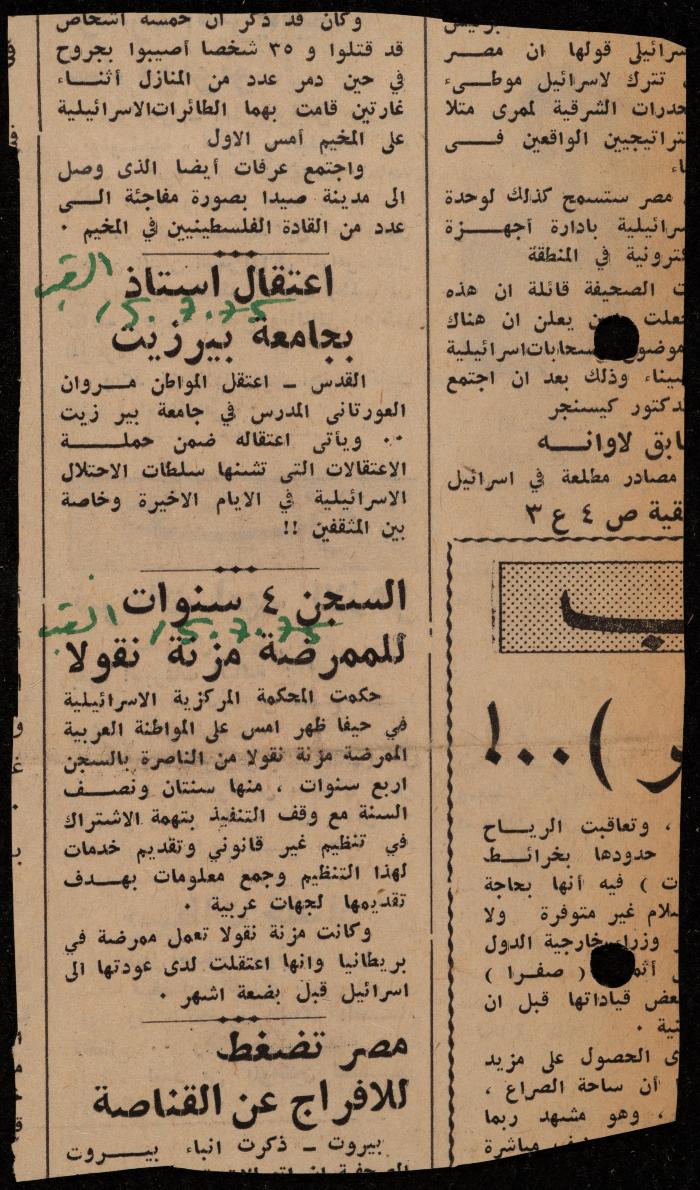 وكان قد ذكر ان خمسة اشخاص
قد قتلوا و ٣٥ شخصا أصيبوا بجروح
في حين دمر عدد من المنازل أثنـاء
غارتين قامت بهما الطائرات الاسرائيلية
على المخيم أمس الاول
واجتمع عرفات أيضا الذى وصل
الى مدينة صيدا بصورة مفاجئة الـى
عدد من القادة الفلسطينيين في المخيم ٠
اعتقال استاذ
القدس
15.7.75
بجامعة بيرزيت
القدس ــ اعتقل المواطن مـروان
العورتانى المدرس في جامعة بير زيت
٠٠ ويأتى اعتقاله ضمن حملـة
الاعتقالات التى تشنها سلطات الاحتلال
الاسرائيلية في الايام الاخيرة وخاصة
بين المثقفين !!
السجن ٤ سنوات
القدس
15.7.75
للممرضة مزنة نقولا
حكمت المحكمة المركزية الاسرائيلية
في حيفا ظهر امس على المواطنة العربية
الممرضة مزنة نقولا من الناصرة بالسجن
اربع سنوات ، منها سنتان ونصـف
السنة مع وقف التنفيذ بتهمة الاشتراك
في تنظيم غير قانوني وتقديم خدمات
لهذا التنظيم وجمع معلومات بهـدف
تقديمها لجهات عربية ٠
وكانت مزنة نقولا تعمل ممرضة في
بريطانيا وانها اعتقلت لدى عودتها الى
اسرائيل قبل بضعة اشهر ٠
مصر تضغط
للافراج عن القناصة
بيروت ــ ذكرت انباء بيـروت
قولها ان مصـر
تترك لاسرائيل موطـىء
الشرقية لممرى متلا
الواقعين فـى
مصر ستسمح كذلك لوحدة
بادارة أجهـزة
في المنطقة
الصحيفة قائلة ان هذه
يعلن ان هناك
وذلك بعد ان اجتمع
كيسنجر
لاوانـه
مصادر مطلعة في اسرائيل
ص ٤ ع ٣
) ٠٠٠!
، وتعاقبت الريـاح
حدودها بخرائـط
) فيه أنها بحاجة
غير متوفرة ولا
خارجية الدول
( صفرا )
قياداتها قبل ان
الحصول على مزيد
أن ساحة الصراع ،
، وهو مشهد ربما
مباشرة